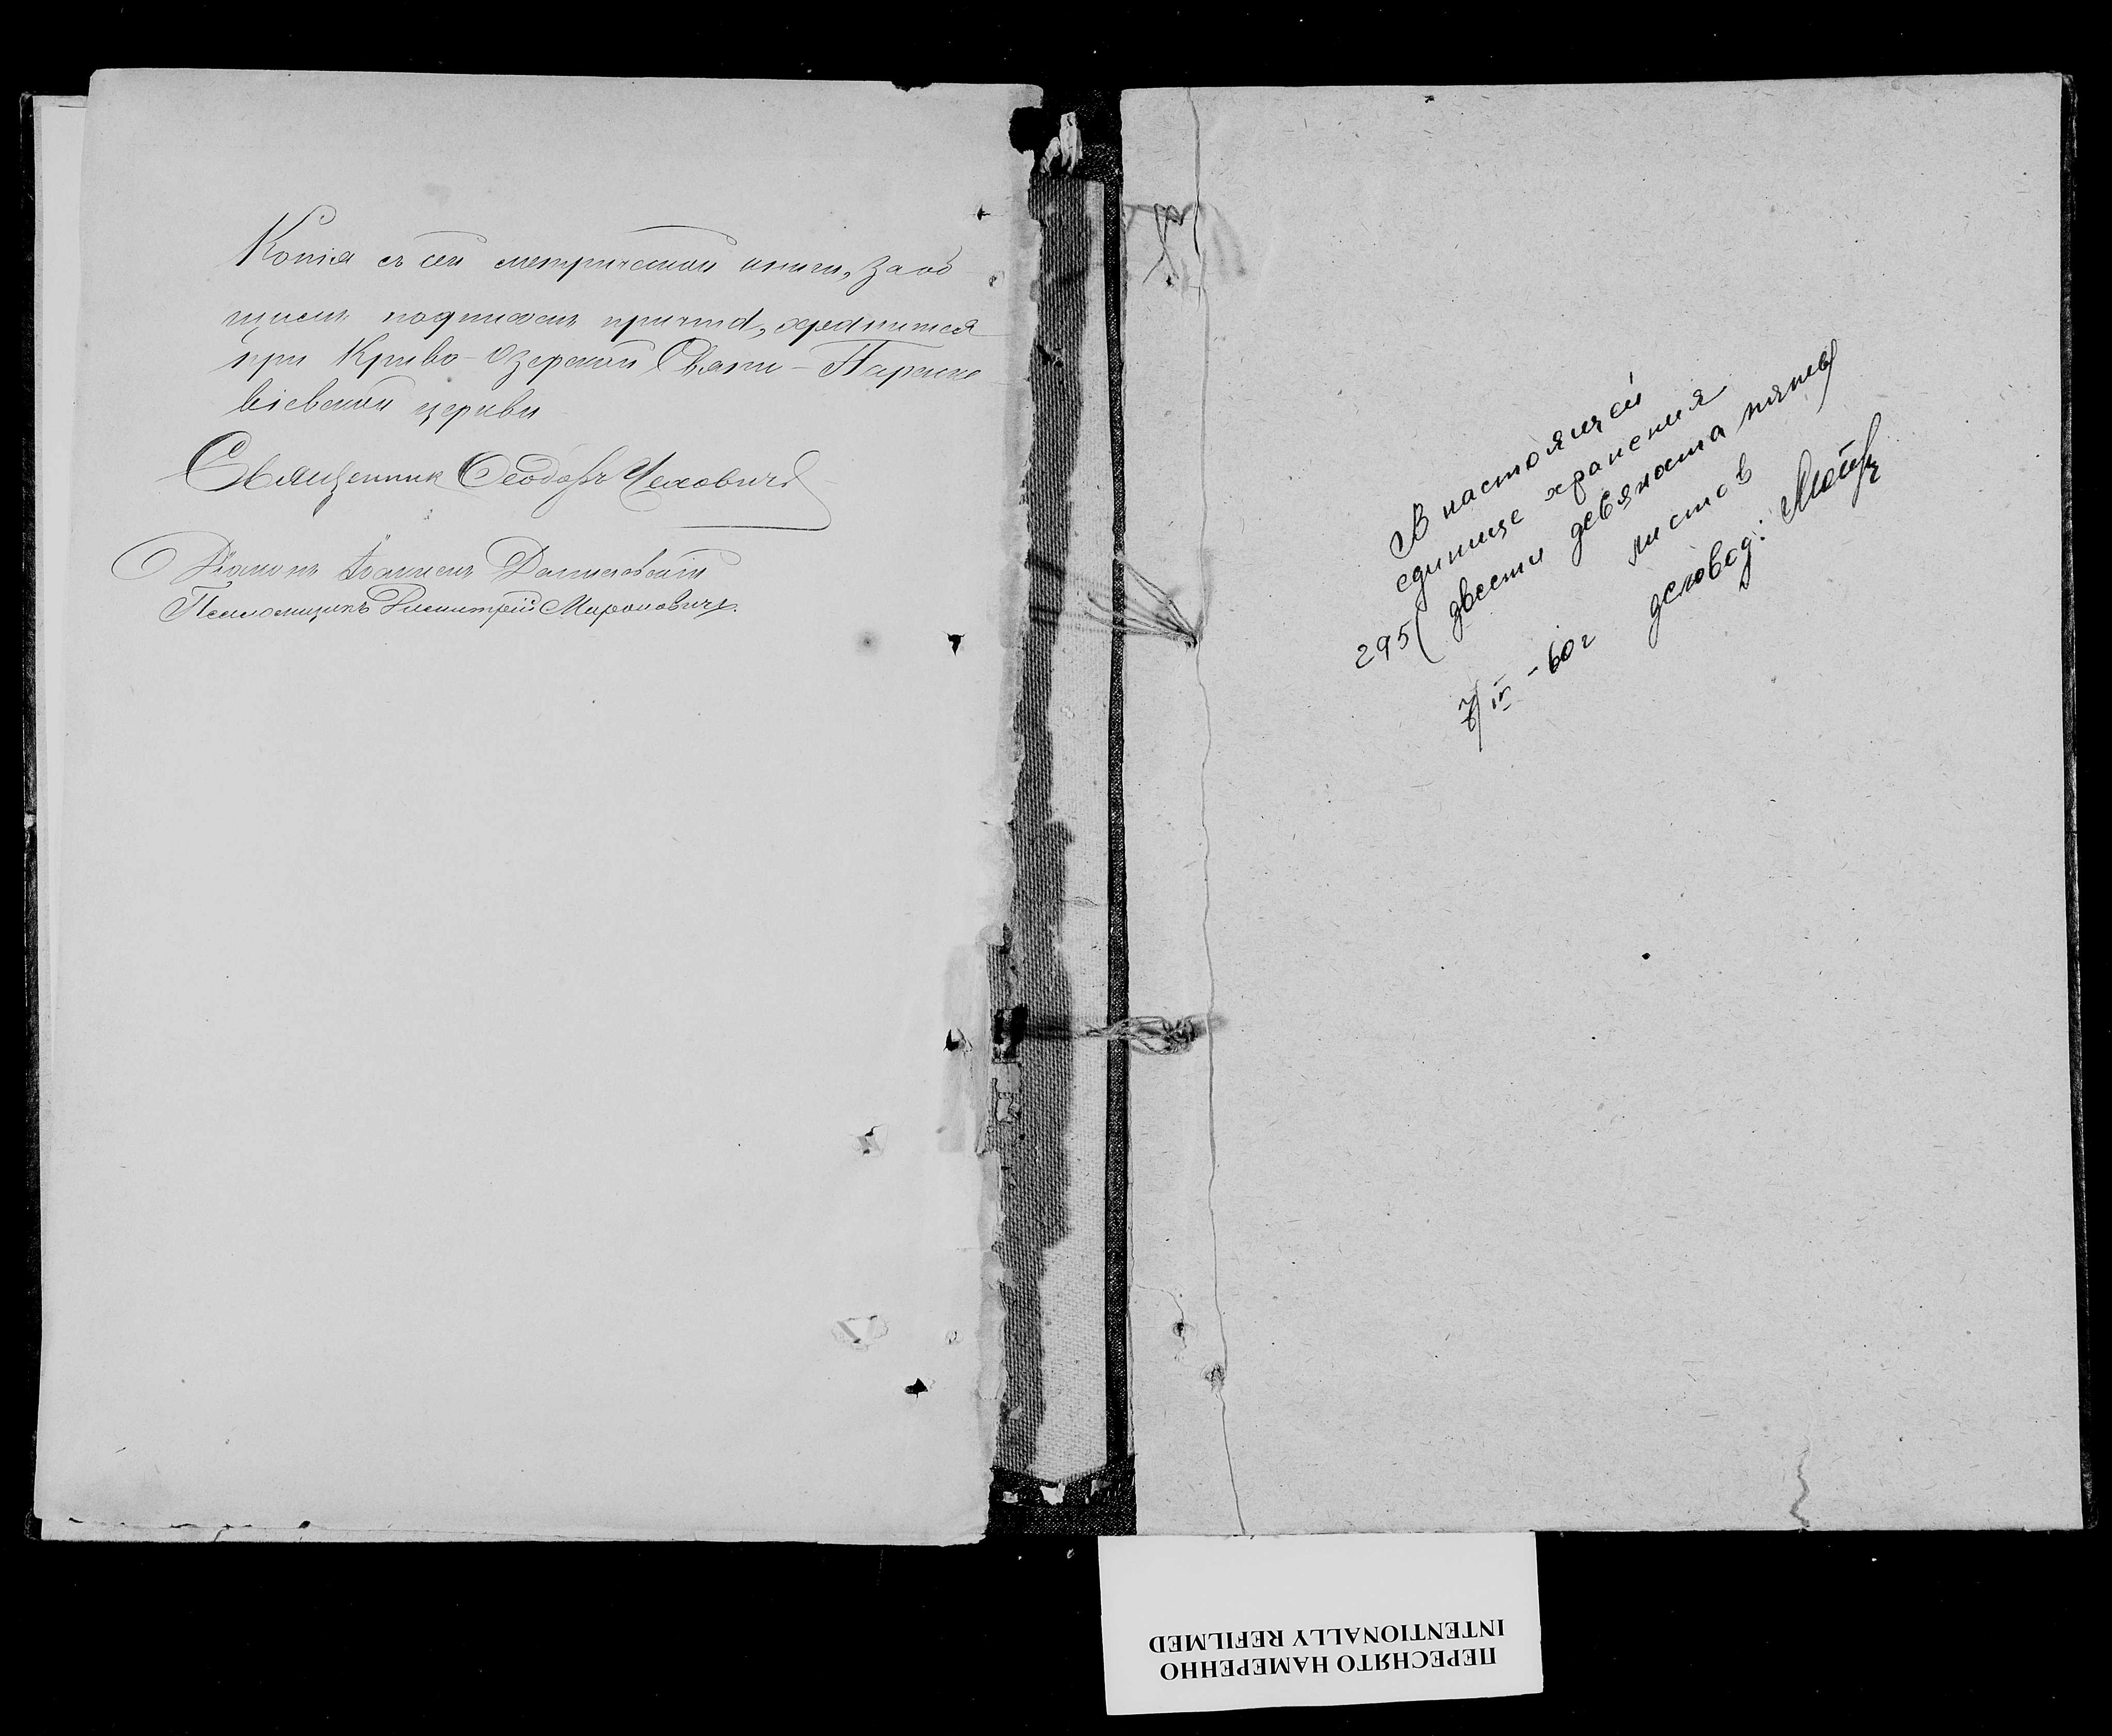 Копія съ сей метрической книги, за об
щимъ подписомъ причта, хранится
при Криво-Озерской Свято-Параске
віевской церкви
Священникъ Ѳеодоръ Чехович
Діаконъ Іоаннъ
Псаломщикъ Димитрій Маронович.
В настоящей
единице хранения
295 ( двести девяноста пять)
листов
7/IV - 60 г
деловод:
ПЕРЕСНЯТО НАМЕРЕННО
INTENTIONALLY REFILMED